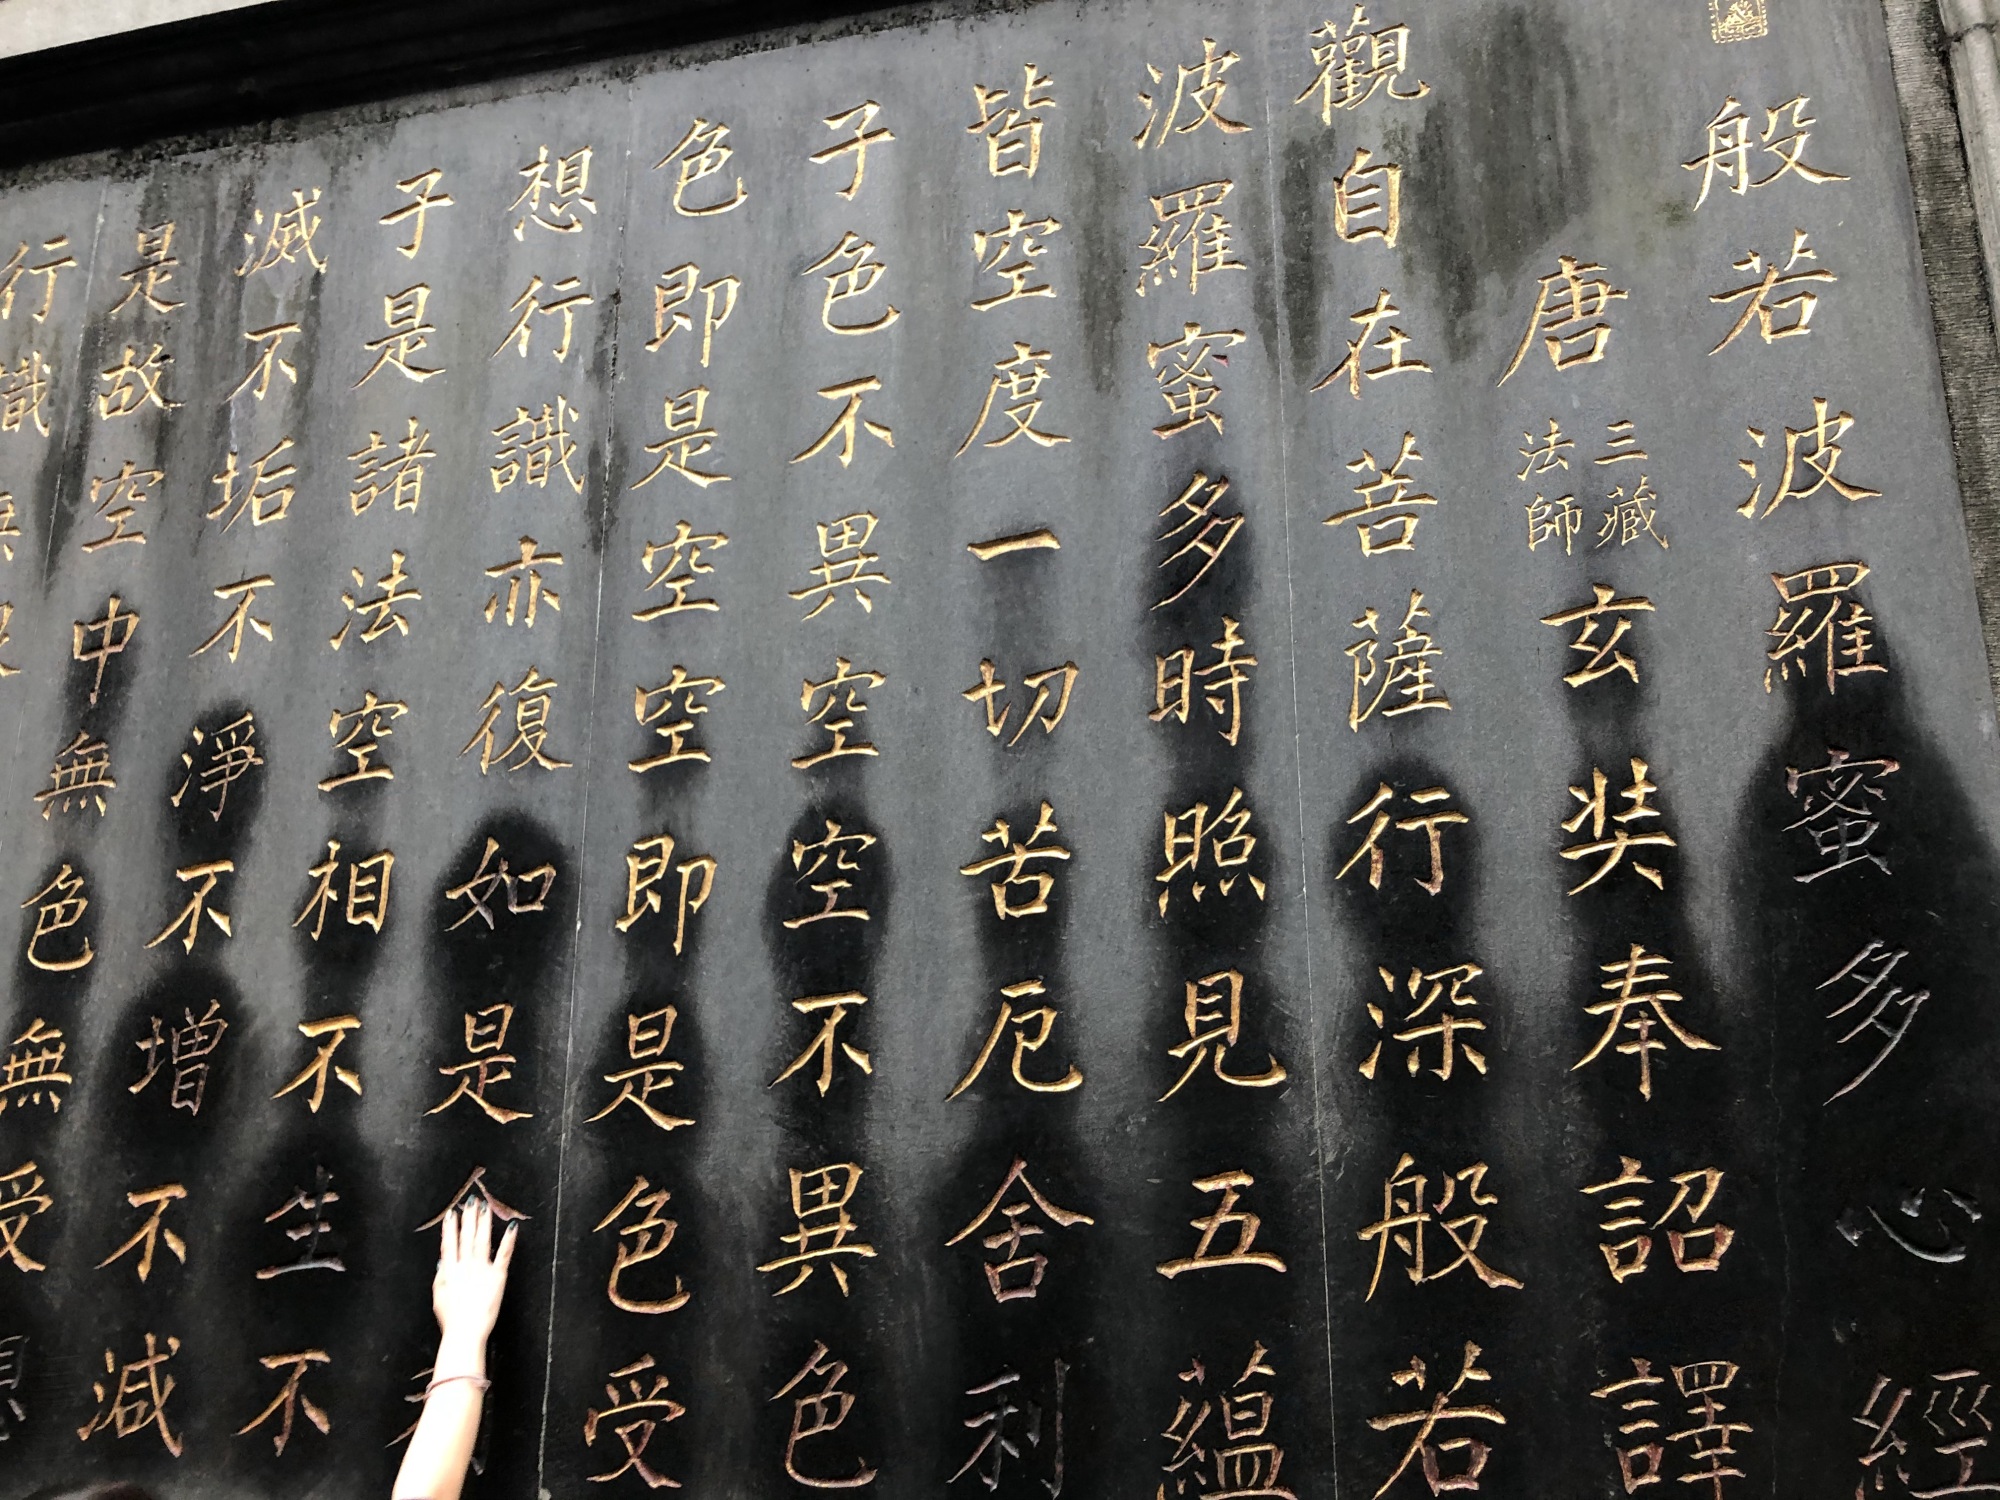 般若波羅蜜多心經
唐三藏法師玄奘奉詔譯
觀自在菩薩行深般若
波羅蜜多時照見五蘊
皆空度一切苦厄舍利
子色不異空空不異色
色即是空空即是色受
想行識亦復如是
子是諸法空相不生不
滅不垢不淨不增不減
是故空中無色無受想
行識無